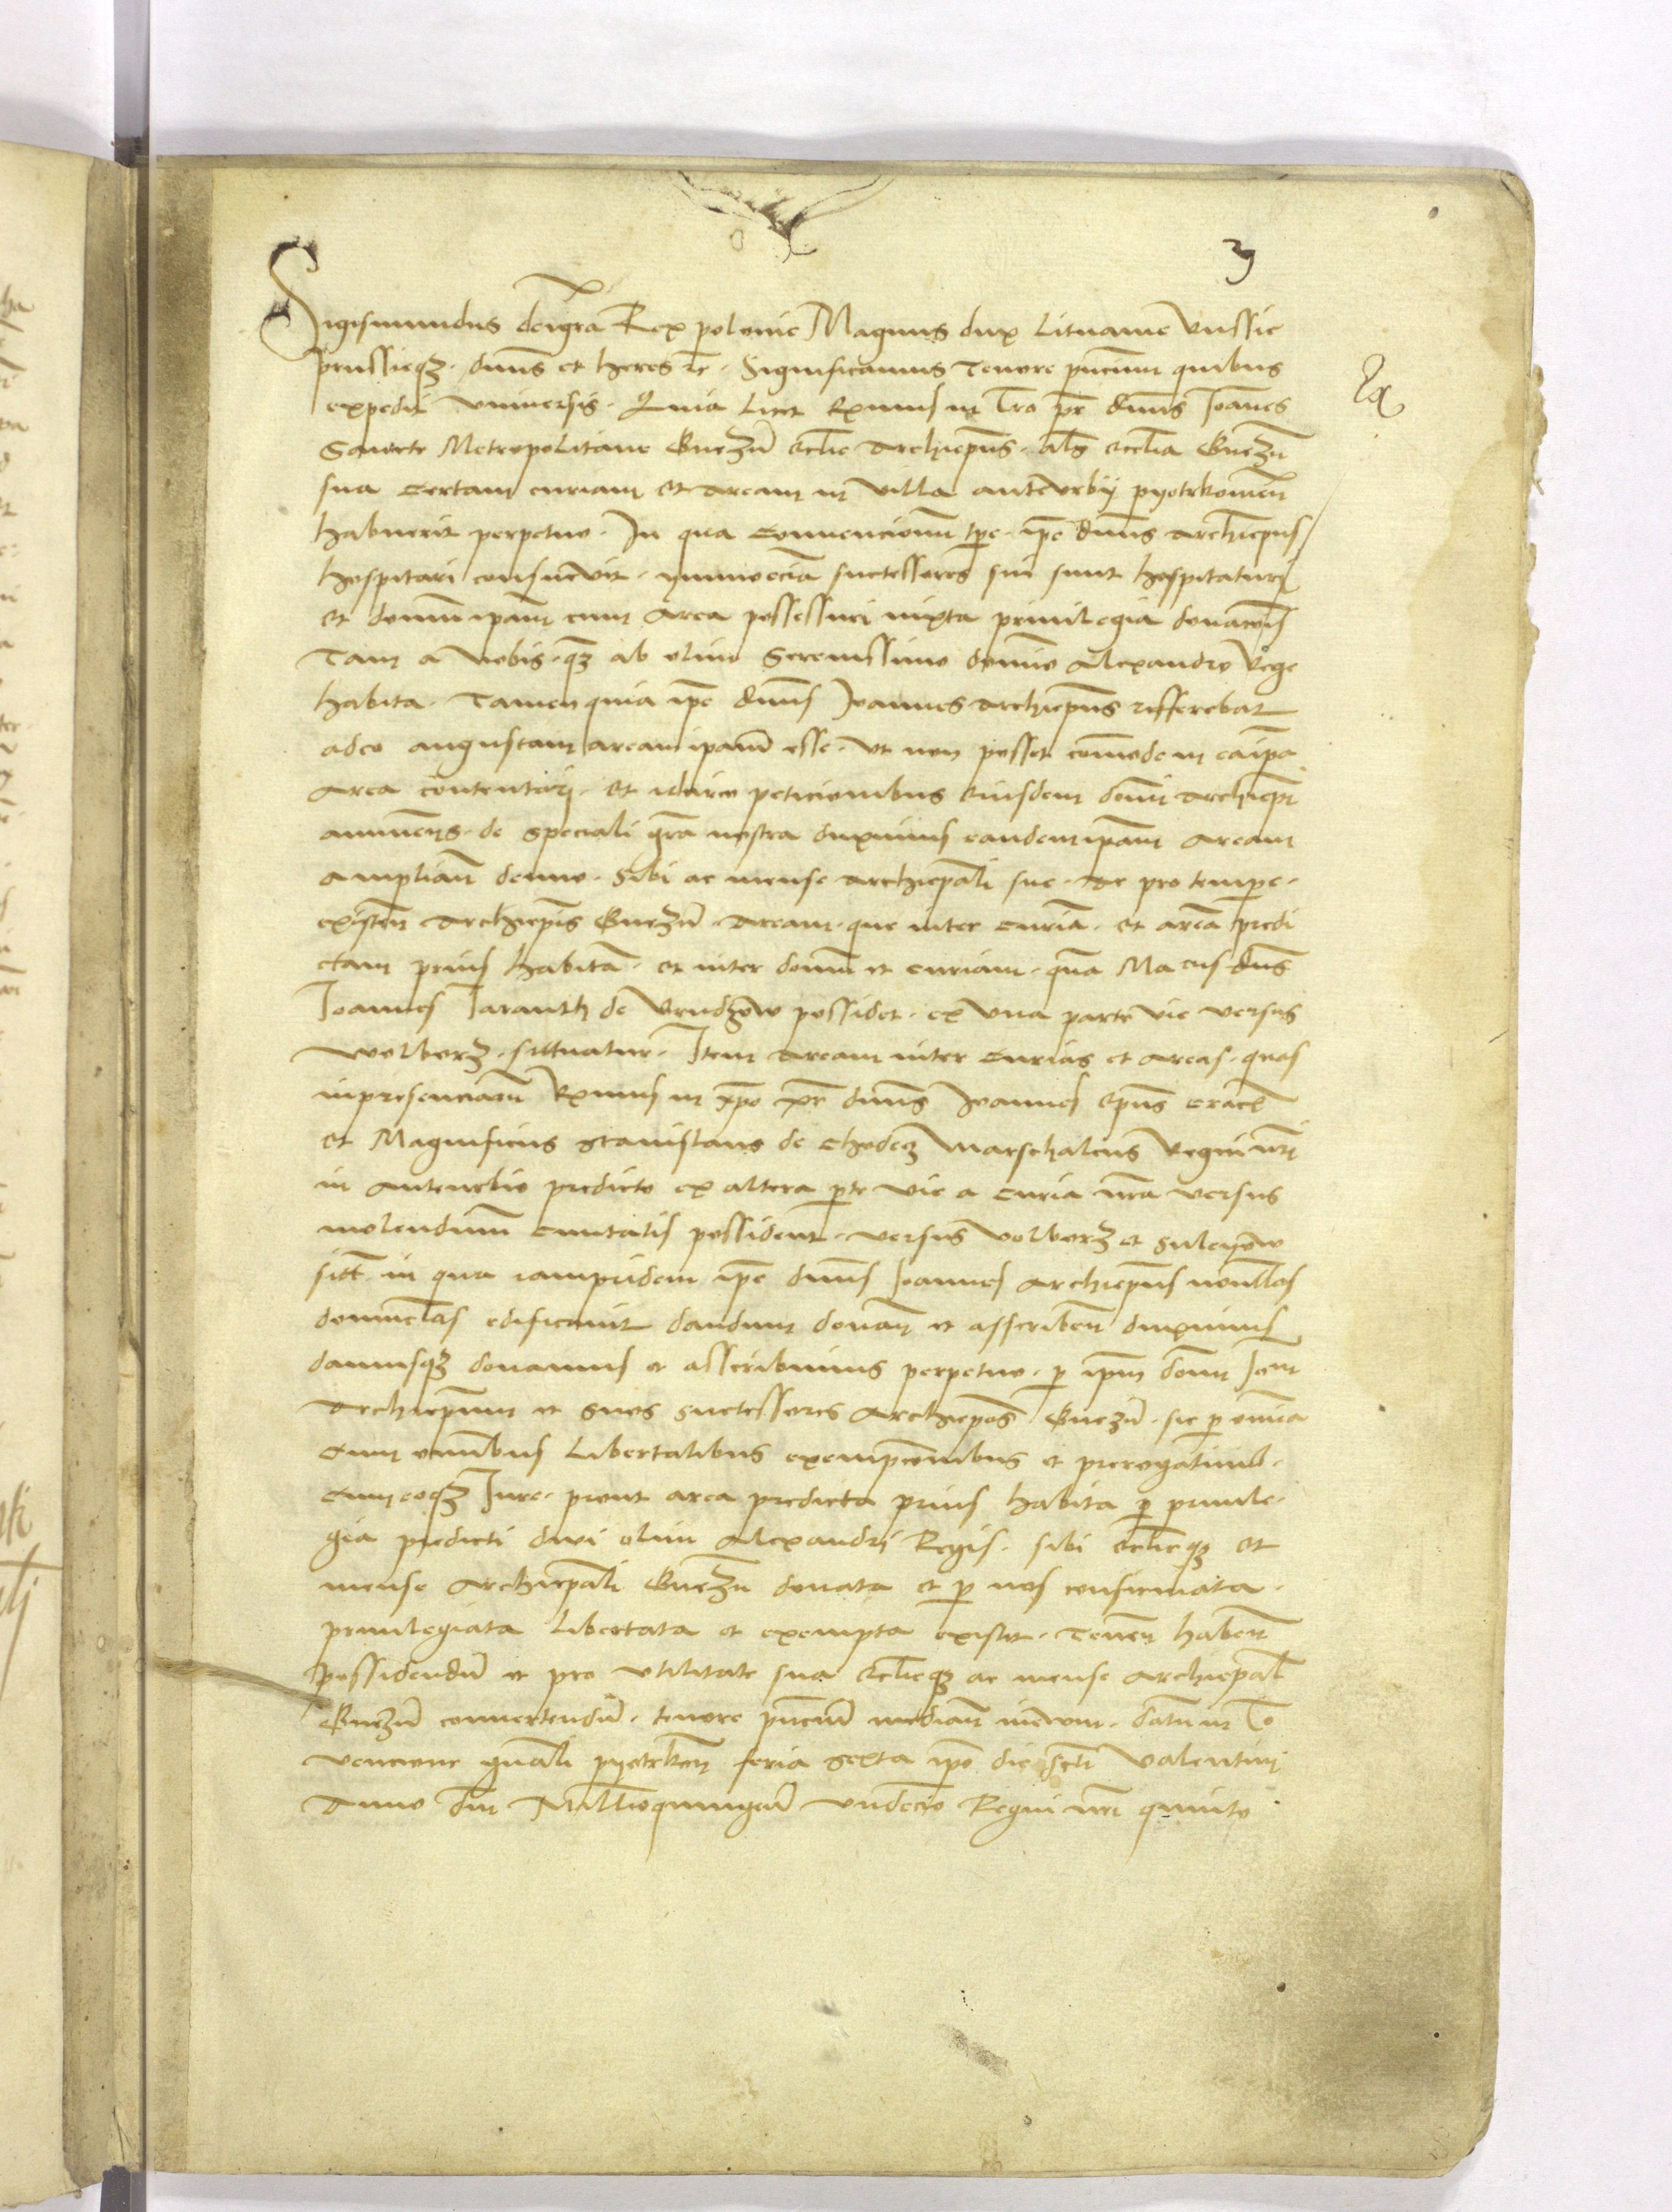 3
Sigismundus dei gr̃a Rex polonie Magnus dux Lituanie Russie
prussieqz. dñus et heres etc. Significamus Tenore pñcium quibus
expedit vniuersis. Quia licet Rx̃mus in pr̃e dñus Ioañes
Sancte Metropolitane Gnezñ Eccl̃ie Archiep̃us. al̃s eccl̃ia Gnezñ
sua certam curiam et Aream in villa anteurbij pyotrkouieñ
habuerit perpetuo. In qua Conuencionũ tp̃e. ip̃e dñus Archiep̃us
hospitari consueuit. ymmoeciã successores sui sunt hospitaturi
et domũ ipam̃ cum Area possessuri iuxta priuilegia donacõis
Tam a Nobis. qz ab olim Serenissimo domĩo Alexandro Rege
habita. Tamen quia ip̃e dñus Ioannes Archiep̃us refferebat
adeo angustam aream ipam̃ esse. vt non posset com̃ode in ea ip̃a
Area contentari. et idcirco peticionibus eiusdem domĩ Archiep̃i
annueñs. de speciali gr̃a nostra duximus eandem ipam̃ Aream
Ampliañ denuo. Sibi ac mense Archiep̃ali sue. Ac pro tempe.
existeñ Archiep̃is Gnezñ. Aream. que inter curiã. et areã predi
ctam prius habitã. et inter domũ et curiam. quã Ma cus dñs
Ioannes Jaranth de Brudzew possidet. ex vna parte vie versus
Wolborz. sittuatur. Item Aream inter Curias et Areas. quas
inpresenciarũ Rx̃mus in xp̃o pr̃ dñus Ioannes Ep̃us Cracõ
et Magnificus Stanislaus de Chodecz Marschalcus Regni nr̃i
in Anteurbio predicto ex altera pte vie a Curia nr̃a versus
molendinũ Ciuitatis possident. versus Volborz et Suleyow
sitt̃. in qua iampridem ip̃e dñus Ioannes Archiep̃us nonnl̃las
domũclas edificauit dandum donañ et asscribeñ duximus
damusqz donamus et asscribimus perpetuo. p ipm̃ domĩ Ioañ
Archiep̃um et suos successores Archiep̃os Gnezñ. sic p omĩa
Cum omĩbus Libertatibus exempcõnibus et prerogatiuis.
Cum eoqz Iure. prout area predicta prius habita p priuile.
gia predicti diui olim Alexandri Regis. sibi eccl̃ieqz et
mense Archiep̃ali Gnezñ donata et p nos confirmata.
priuilegiata Libertata et exempta existit. Teneñ habeñ
possidendũ et pro vtilitate sua Eccl̃ieqz ac mense Archiep̃al̃
Gnezñ conuertendũ. tenore pñciũ mediañ ineuum. Datũ in Co
uencione gñali pyotrkoñ feria sexta ip̃o die sct̃i Valentini
Anno dñi Mill̃ioquingeñ vndecĩo Regni nr̃i quinto